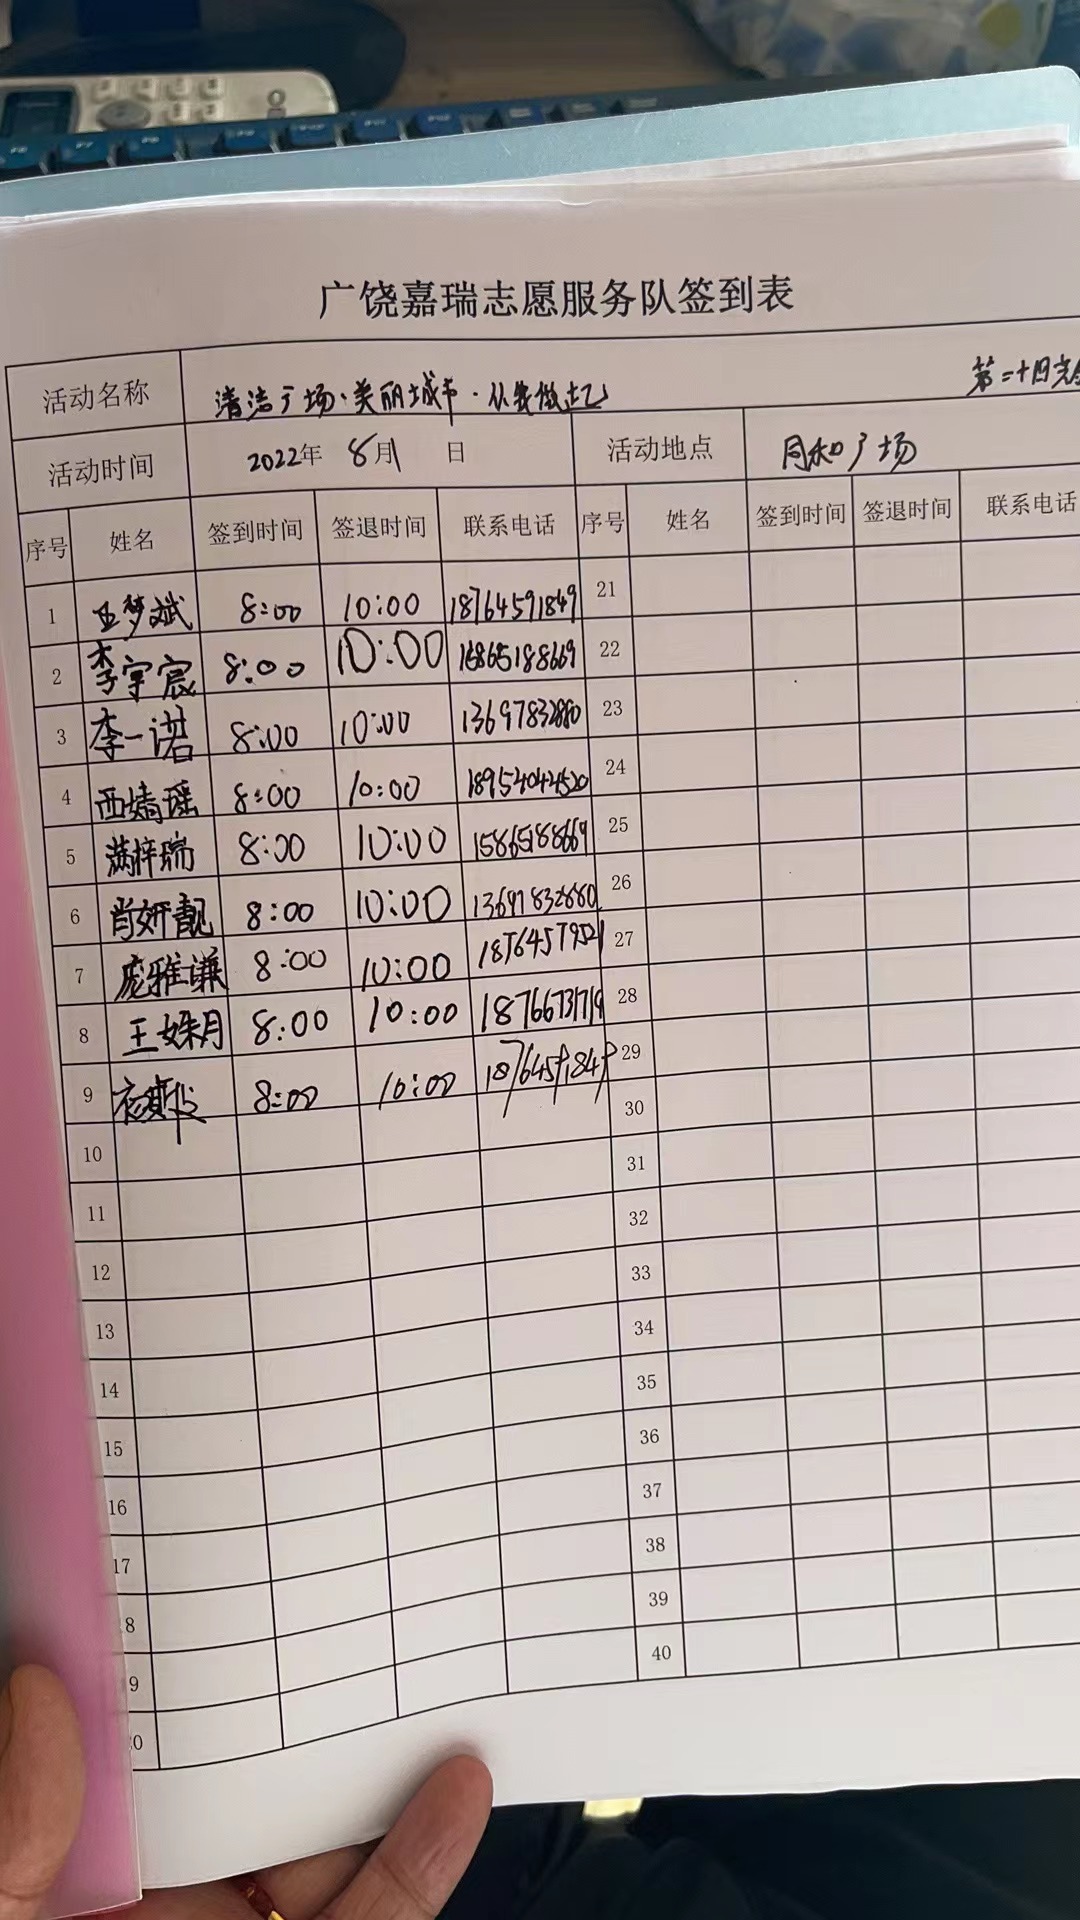 广饶嘉瑞志愿服务队签到表
第二十四
活动名称 清洁广场·美丽城市·从我做起
活动时间 2022年 8月 日 活动地点 同和广场
序号 姓名 签到时间 签退时间 联系电话 序号 姓名 签到时间 签退时间 联系电话
1 王梦斌 8:00 10:00 18764591849 21
2 李宇宸 8:00 10:00 15865188669 22
3 李一诺 8:00 10:00 13697832880 23
4 西婧瑶 8:00 10:00 18954044520 24
5 满梓瑞 8:00 10:00 15865188669 25
6 肖妍靓 8:00 10:00 13697832880 26
7 庞雅谦 8:00 10:00 27
8 王姝月 8:00 10:00 28
9 8:00 10:00 29
10 30
11 31
12 32
13 33
14 34
15 35
16 36
17 37
8 38
9 39
0 40